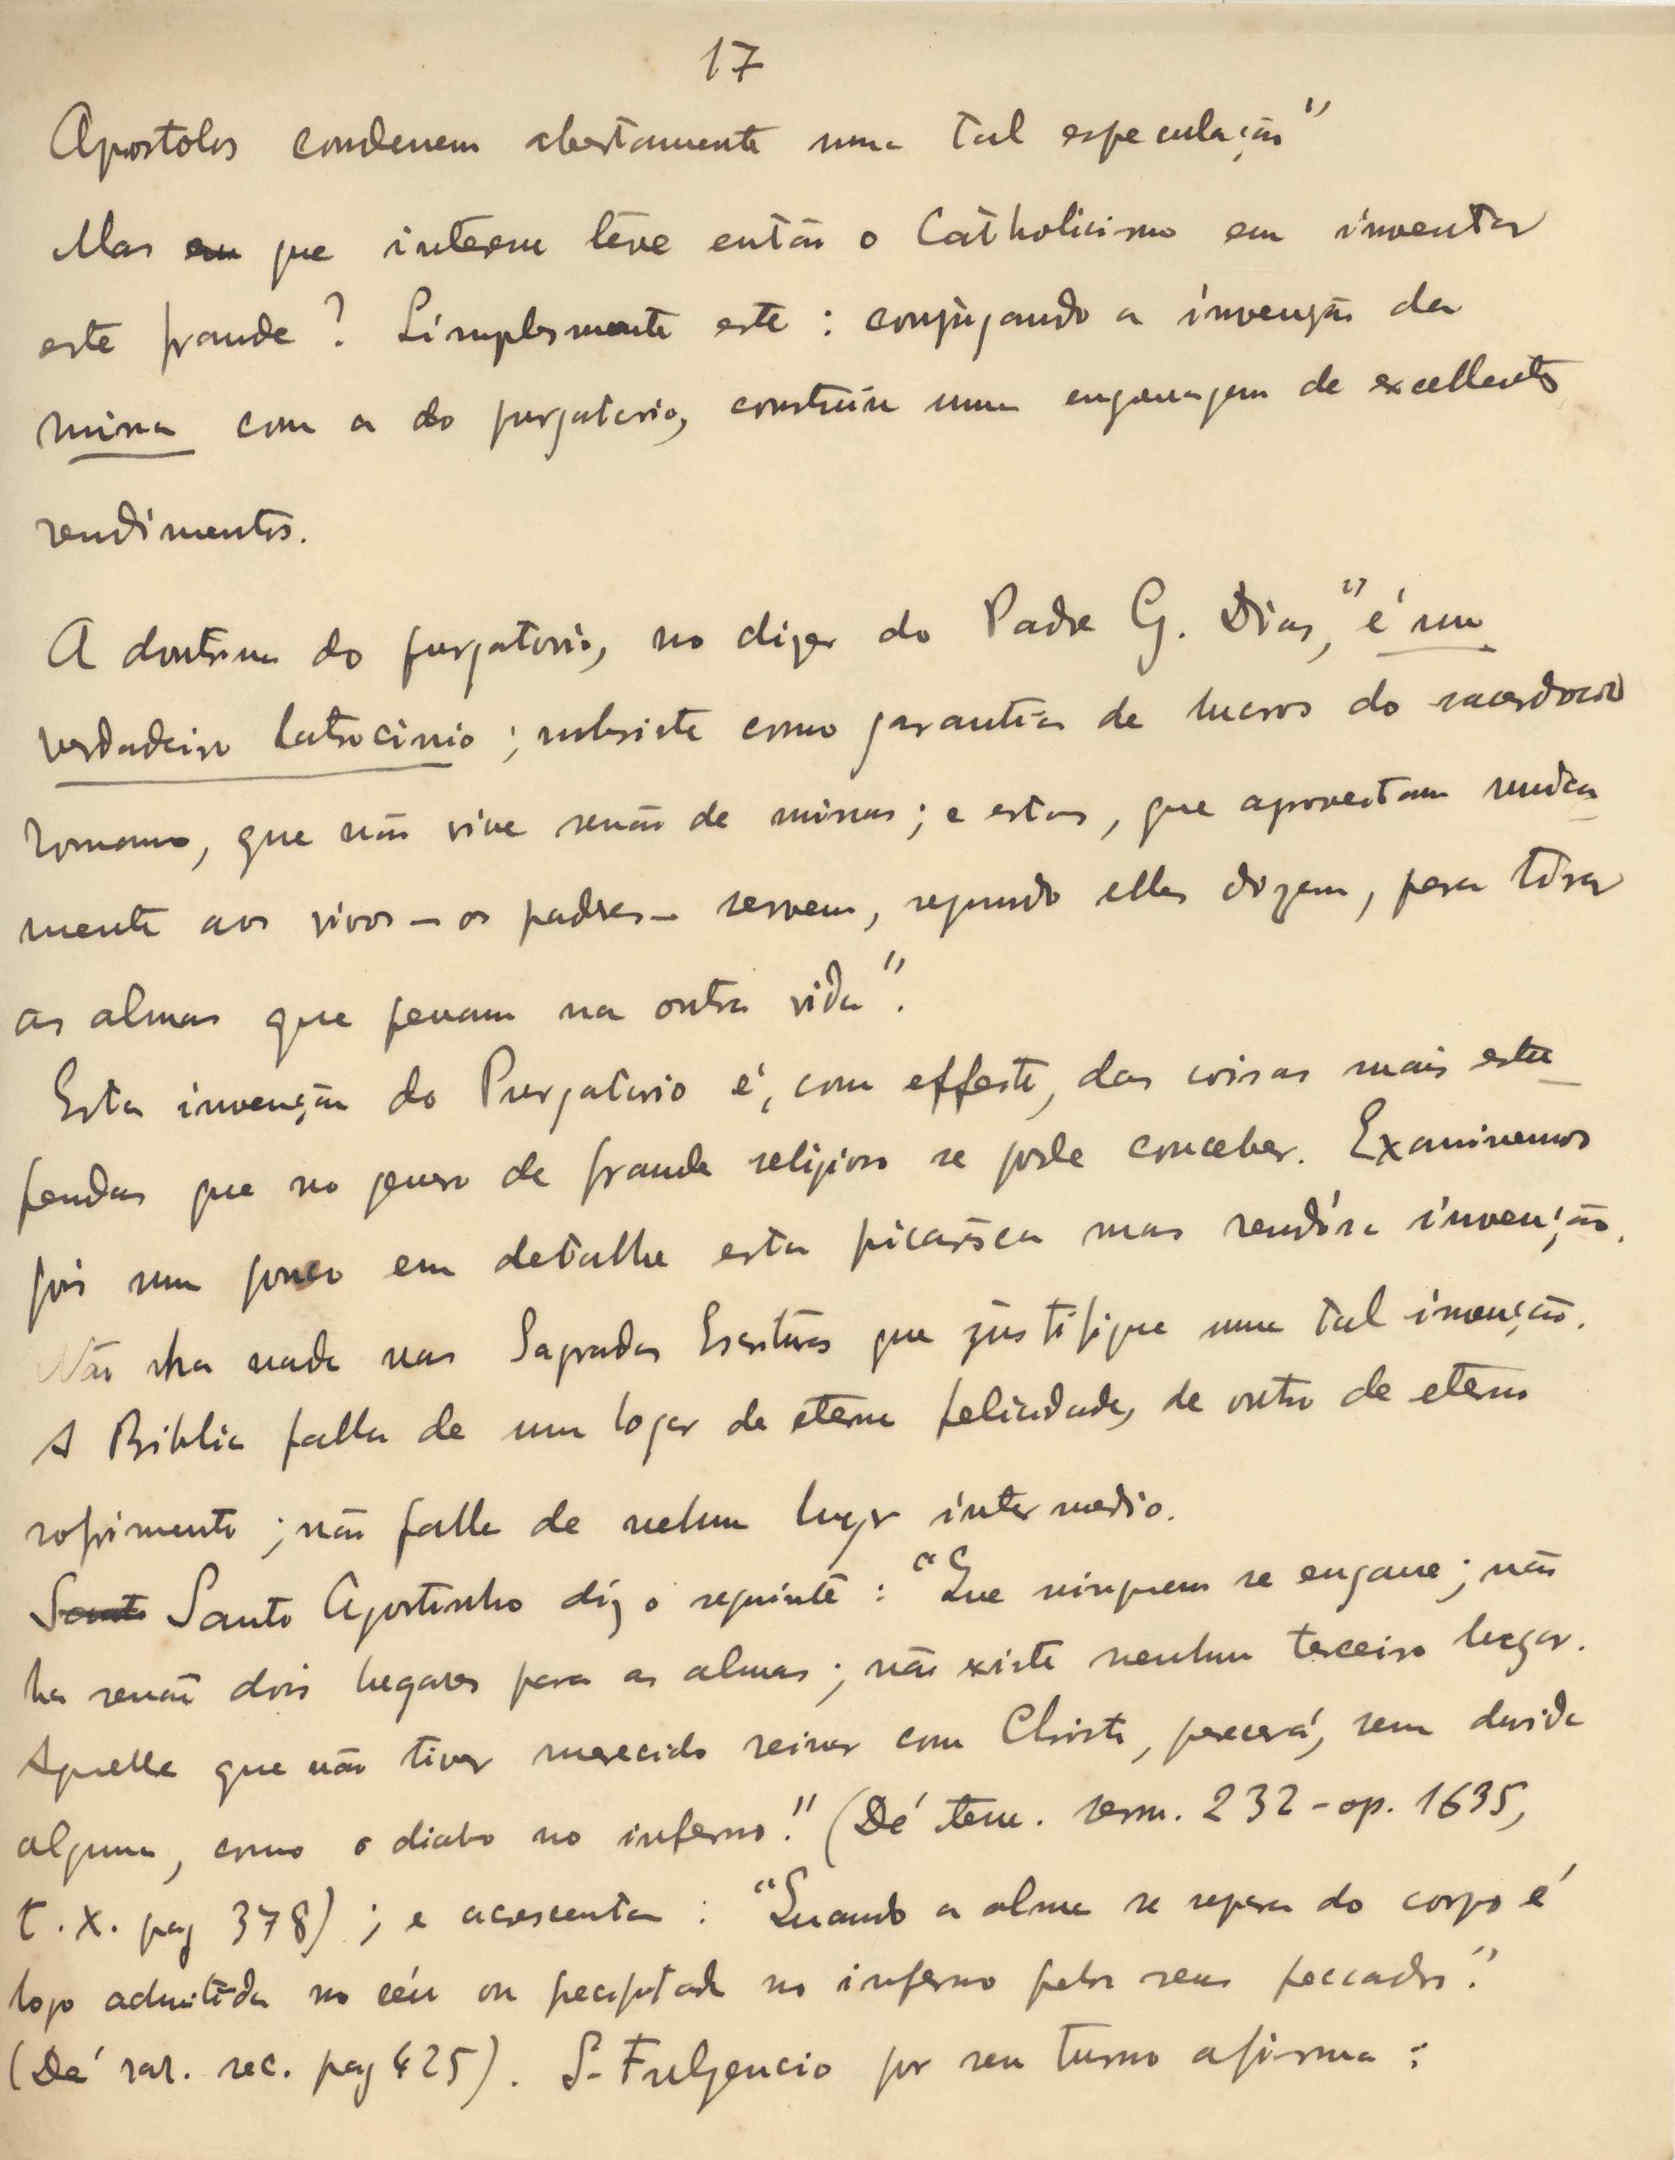 17
Apostolos condenem abertamente uma tal especulação"
Mas em que interesse teve então o Catholicismo em inventar
esta fraude? Simplesmente este: conjugando a invenção da
missa com a do purgatorio, construiu uma engrenagem de excellentes
rendimentos.
A doutrina do purgatorio, no dizer do Padre G. Dias, "é um
verdadeiro latrocinio; subsiste como garantia de lucros do sacerdocio
romano, que não vive senão de missas; e estas, que aproveitam unica-
mente aos vivos - os padres - servem, segundo elles dizem, para tirar
as almas que penam na outra vida".
Esta invenção do Purgatorio é, com effeito, das coisas mais estu-
pendas que no genero de fraude religiosa se pode conceber. Examinemos
pois um pouco em detalhe esta picaresca mas rendosa invenção.
Não ha nada nas Sagradas Escrituras que justifique uma tal invenção.
A Biblia falla de um logar de eterna felicidade, de outro de eterno
sofrimento; não falla de nehum lugar intermedio.
Santo Santo Agostinho diz o seguinte: "Que ninguem se engane; não
ha senão dois lugares para as almas; não existe nenhum terceiro lugar.
Aquelle que não tiver merecido reinar com Christo, perecerá, sem duvida
alguma, como o diabo no inferno." (Dé tem. serm. 232 - op. 1635,
t. X. pag 378); e acrescenta: "Quando a alma se separa do corpo é
logo admitida no céu ou precipitada no inferno pelos seus peccados."
(Dé sec. pag 425). S. Fulgencio por seu turno afirma: